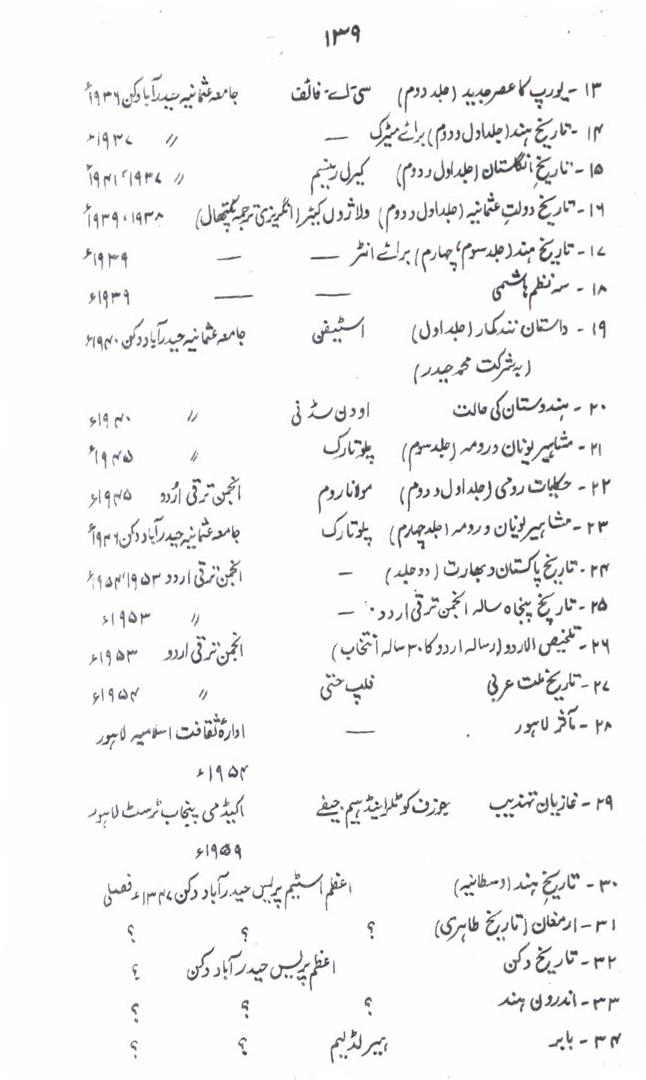 ۱۳۹
۱۳ - یورپ کا عصر جدید (جلد دوم) سی۔اے۔ فائف جامعہ عثمانیہ حیدرآباد دکن ۱۹۳۶ء
۱۴ - تاریخ ہند (جلد اول و دوم) برائے میٹرک — // ۱۹۳۷ء
۱۵ - تاریخ انگلستان (جلد اول و دوم) کیرل رینسم // ۱۹۳۷ء، ۱۹۴۱ء
۱۶ - تاریخ دولتِ عثمانیہ (جلد اول و دوم) ولاژوں کیئر (انگریزی ترجمہ پکتھال) ۱۹۳۸، ۱۹۳۹ء
۱۷ - تاریخ ہند (جلد سوم، چہارم) برائے انٹر — — ۱۹۳۹ء
۱۸ - سہ نظم ہاشمی — — ۱۹۳۹ء
۱۹ - داستان نند کمار (جلد اول) اسٹیفن جامعہ عثمانیہ حیدرآباد دکن ۱۹۴۰ء
(بہ شرکت محمد حیدر)
۲۰ - ہندوستان کی حالت اودن سڈنی // ۱۹۴۰ء
۲۱ - مشاہیر یونان و رومہ (جلد سوم) پلوتارک // ۱۹۴۵ء
۲۲ - حکایات رومی (جلد اول و دوم) مولانا روم انجمن ترقی اُردو ۱۹۴۵ء
۲۳ - مشاہیر یونان و رومہ (جلد چہارم) پلوتارک جامعہ عثمانیہ حیدرآباد دکن ۱۹۴۶ء
۲۴ - تاریخ پاکستان و بھارت (دو جلد) — انجمن ترقی اردو ۱۹۵۳، ۱۹۵۴ء
۲۵ - تاریخ پنجاہ سالہ انجمن ترقی اردو - — // ۱۹۵۳ء
۲۶ - تلخیص الاردو (رسالہ اردو کا ۳۰ سالہ انتخاب) انجمن ترقی اردو ۱۹۵۳ء
۲۷ - تاریخ ملت عربی فلپ حتی // ۱۹۵۴ء
۲۸ - مآثر لاہور — ادارۂ ثقافت اسلامیہ لاہور
۱۹۵۴ء
۲۹ - غازیان تہذیب جوزف کوٹلر اینڈ ہیم جیفے اکیڈمی پنجاب ٹرسٹ لاہور
۱۹۵۹ء
۳۰ - تاریخ ہند (وسطانیہ) اعظم اسٹیم پریس حیدرآباد دکن ۱۳۴۷ء فصلی
۳۱ - ارمغان (تاریخ طاہری) ؟ ؟ ؟
۳۲ - تاریخ دکن اعظم پریس حیدرآباد دکن ؟
۳۳ - اندرون ہند ؟ ؟ ؟
۳۴ - بابر ہیرلڈ لیم ؟ ؟